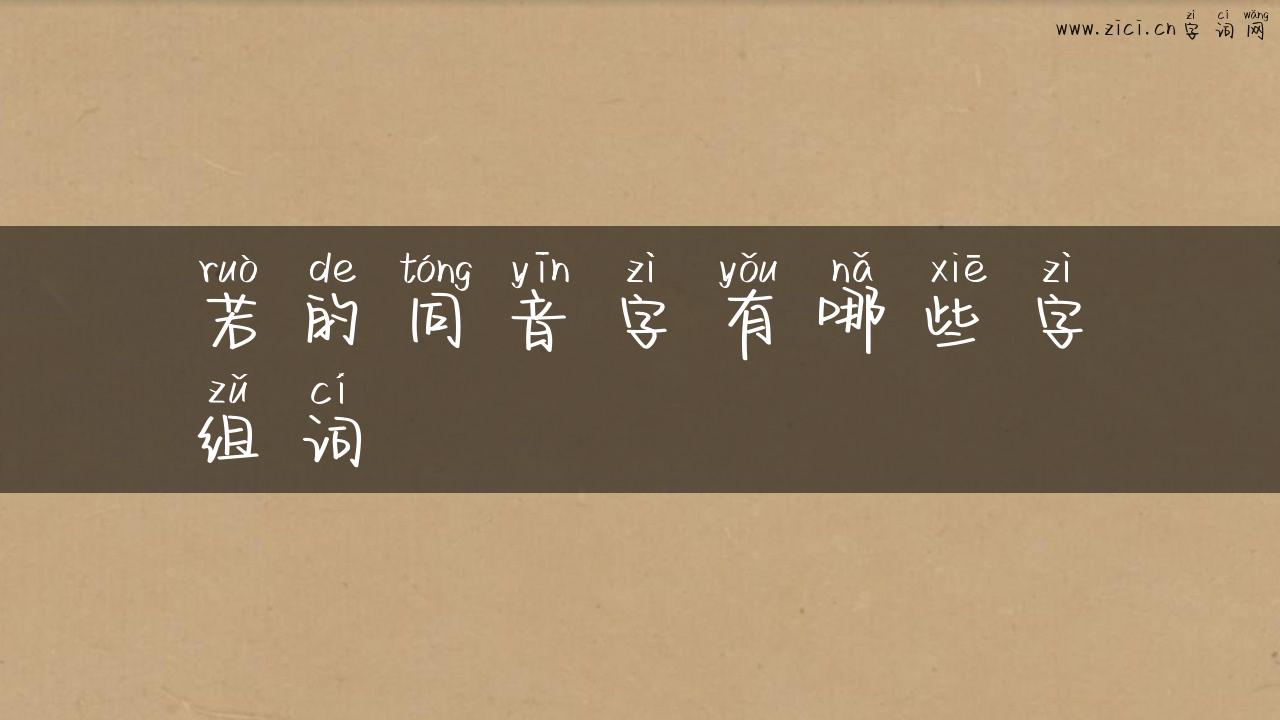 zì cí wǎng
www.zici.cn 字词网
ruò de tóng yīn zì yǒu nǎ xiē zì
若的同音字有哪些字
zǔ cí
组词